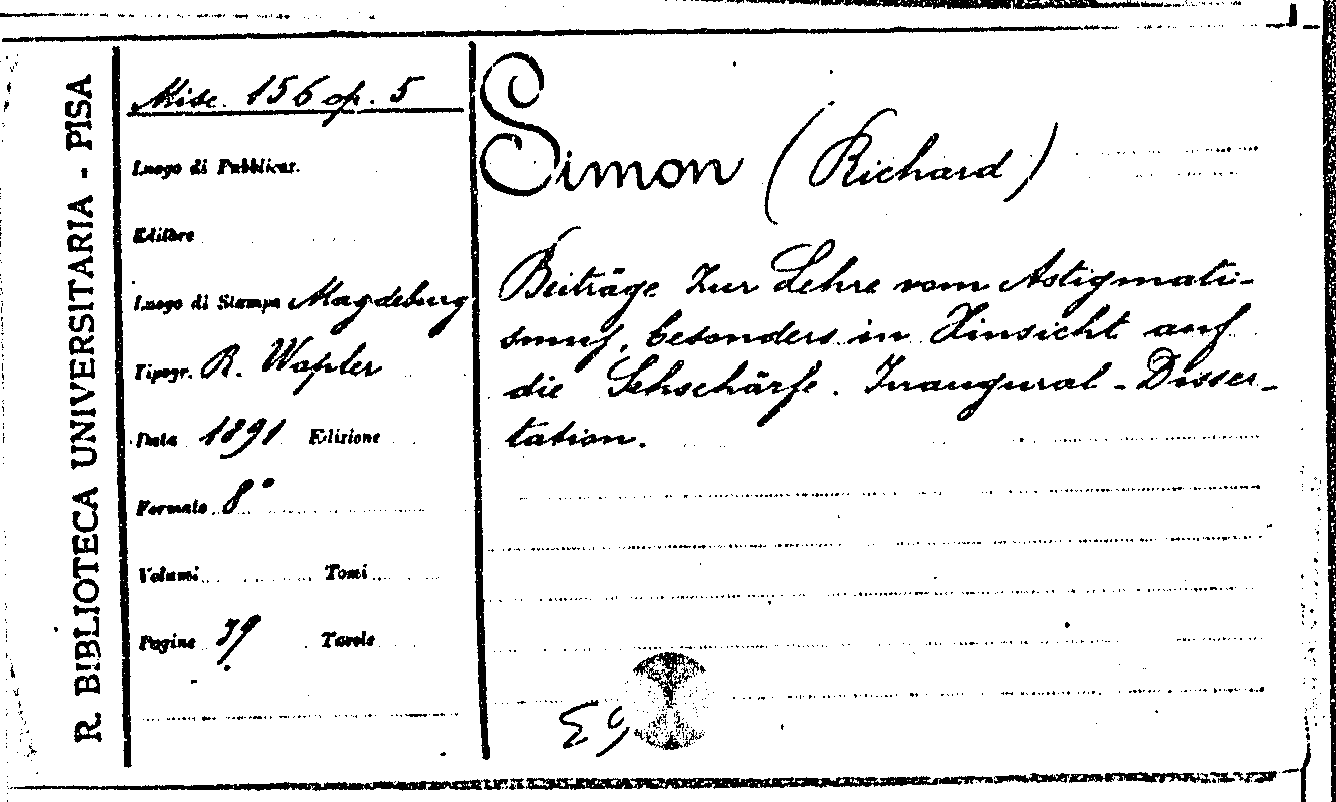 R. BIBLIOTECA UNIVERSITARIA - PISA
Misc. 156 op. 5
Luogo di Pubblicaz.
Editore
Luogo di Stampa Magdeburg
Tipogr. R. Wapler
Data 1891 Edizione
Formato 8°
Volumi Tomi
Pagine 39 Tavole
Simon (Richard)
Beiträge zur Lehre vom Astigmati-
smus, besonders in Hinsicht auf
die Sehschärfe. Inaugural-Disser-
tation.